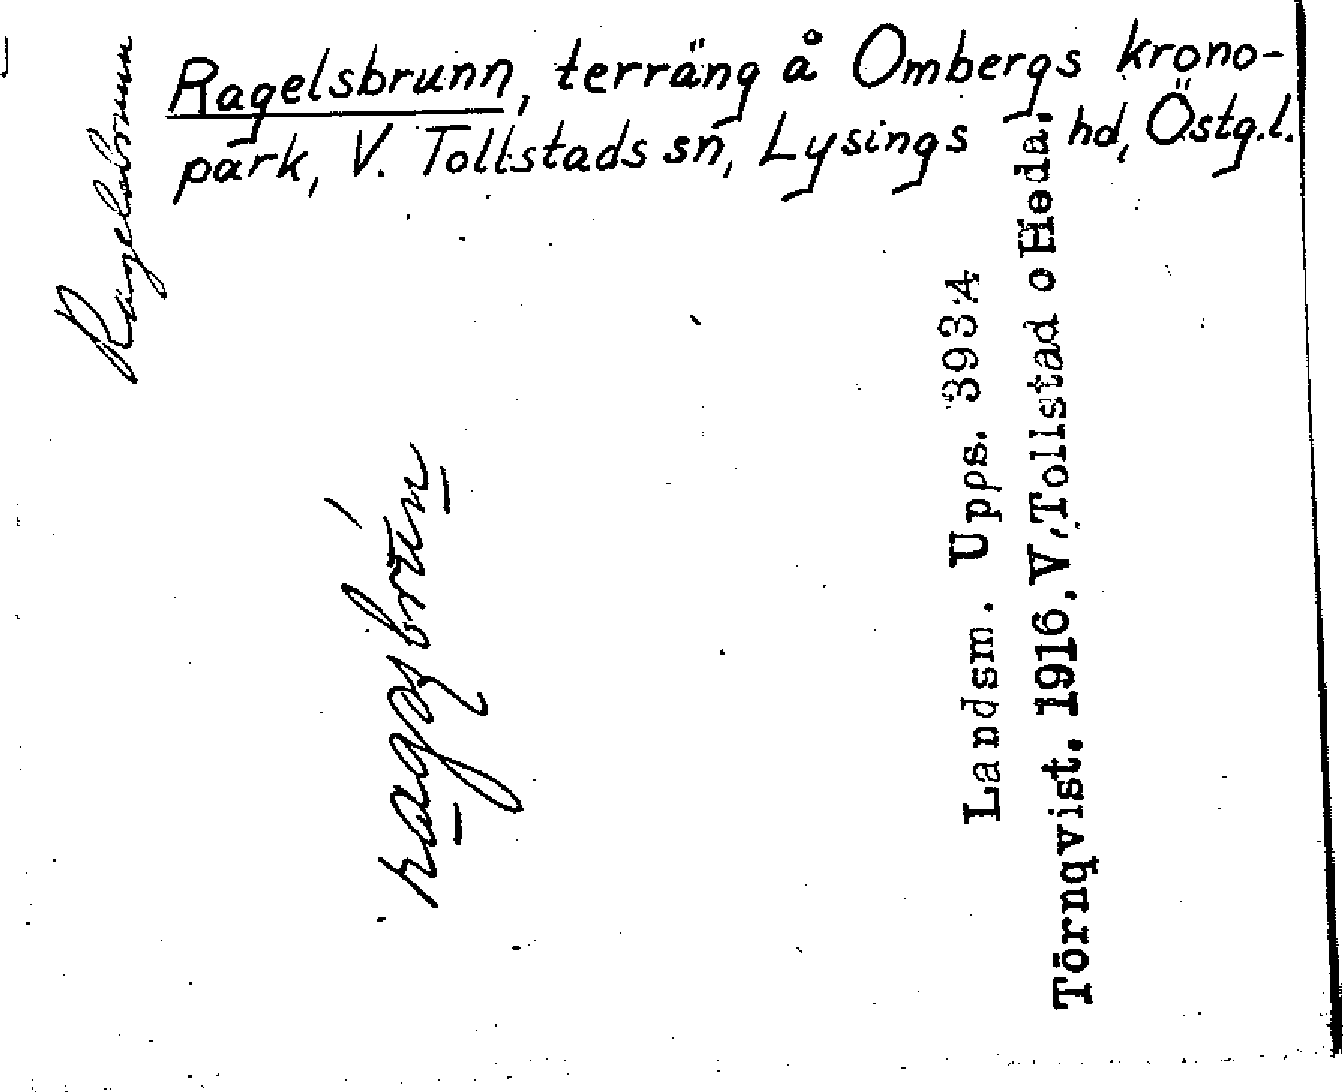 Ragelsbrunn, terräng å Ombergs krono-
park, V. Tollstads sn, Lysings hd, Östg.l.
Ragelsbrunn
Landsm. Upps. 393:4
Törnqvist. 1916, V. Tollstad o Heda.